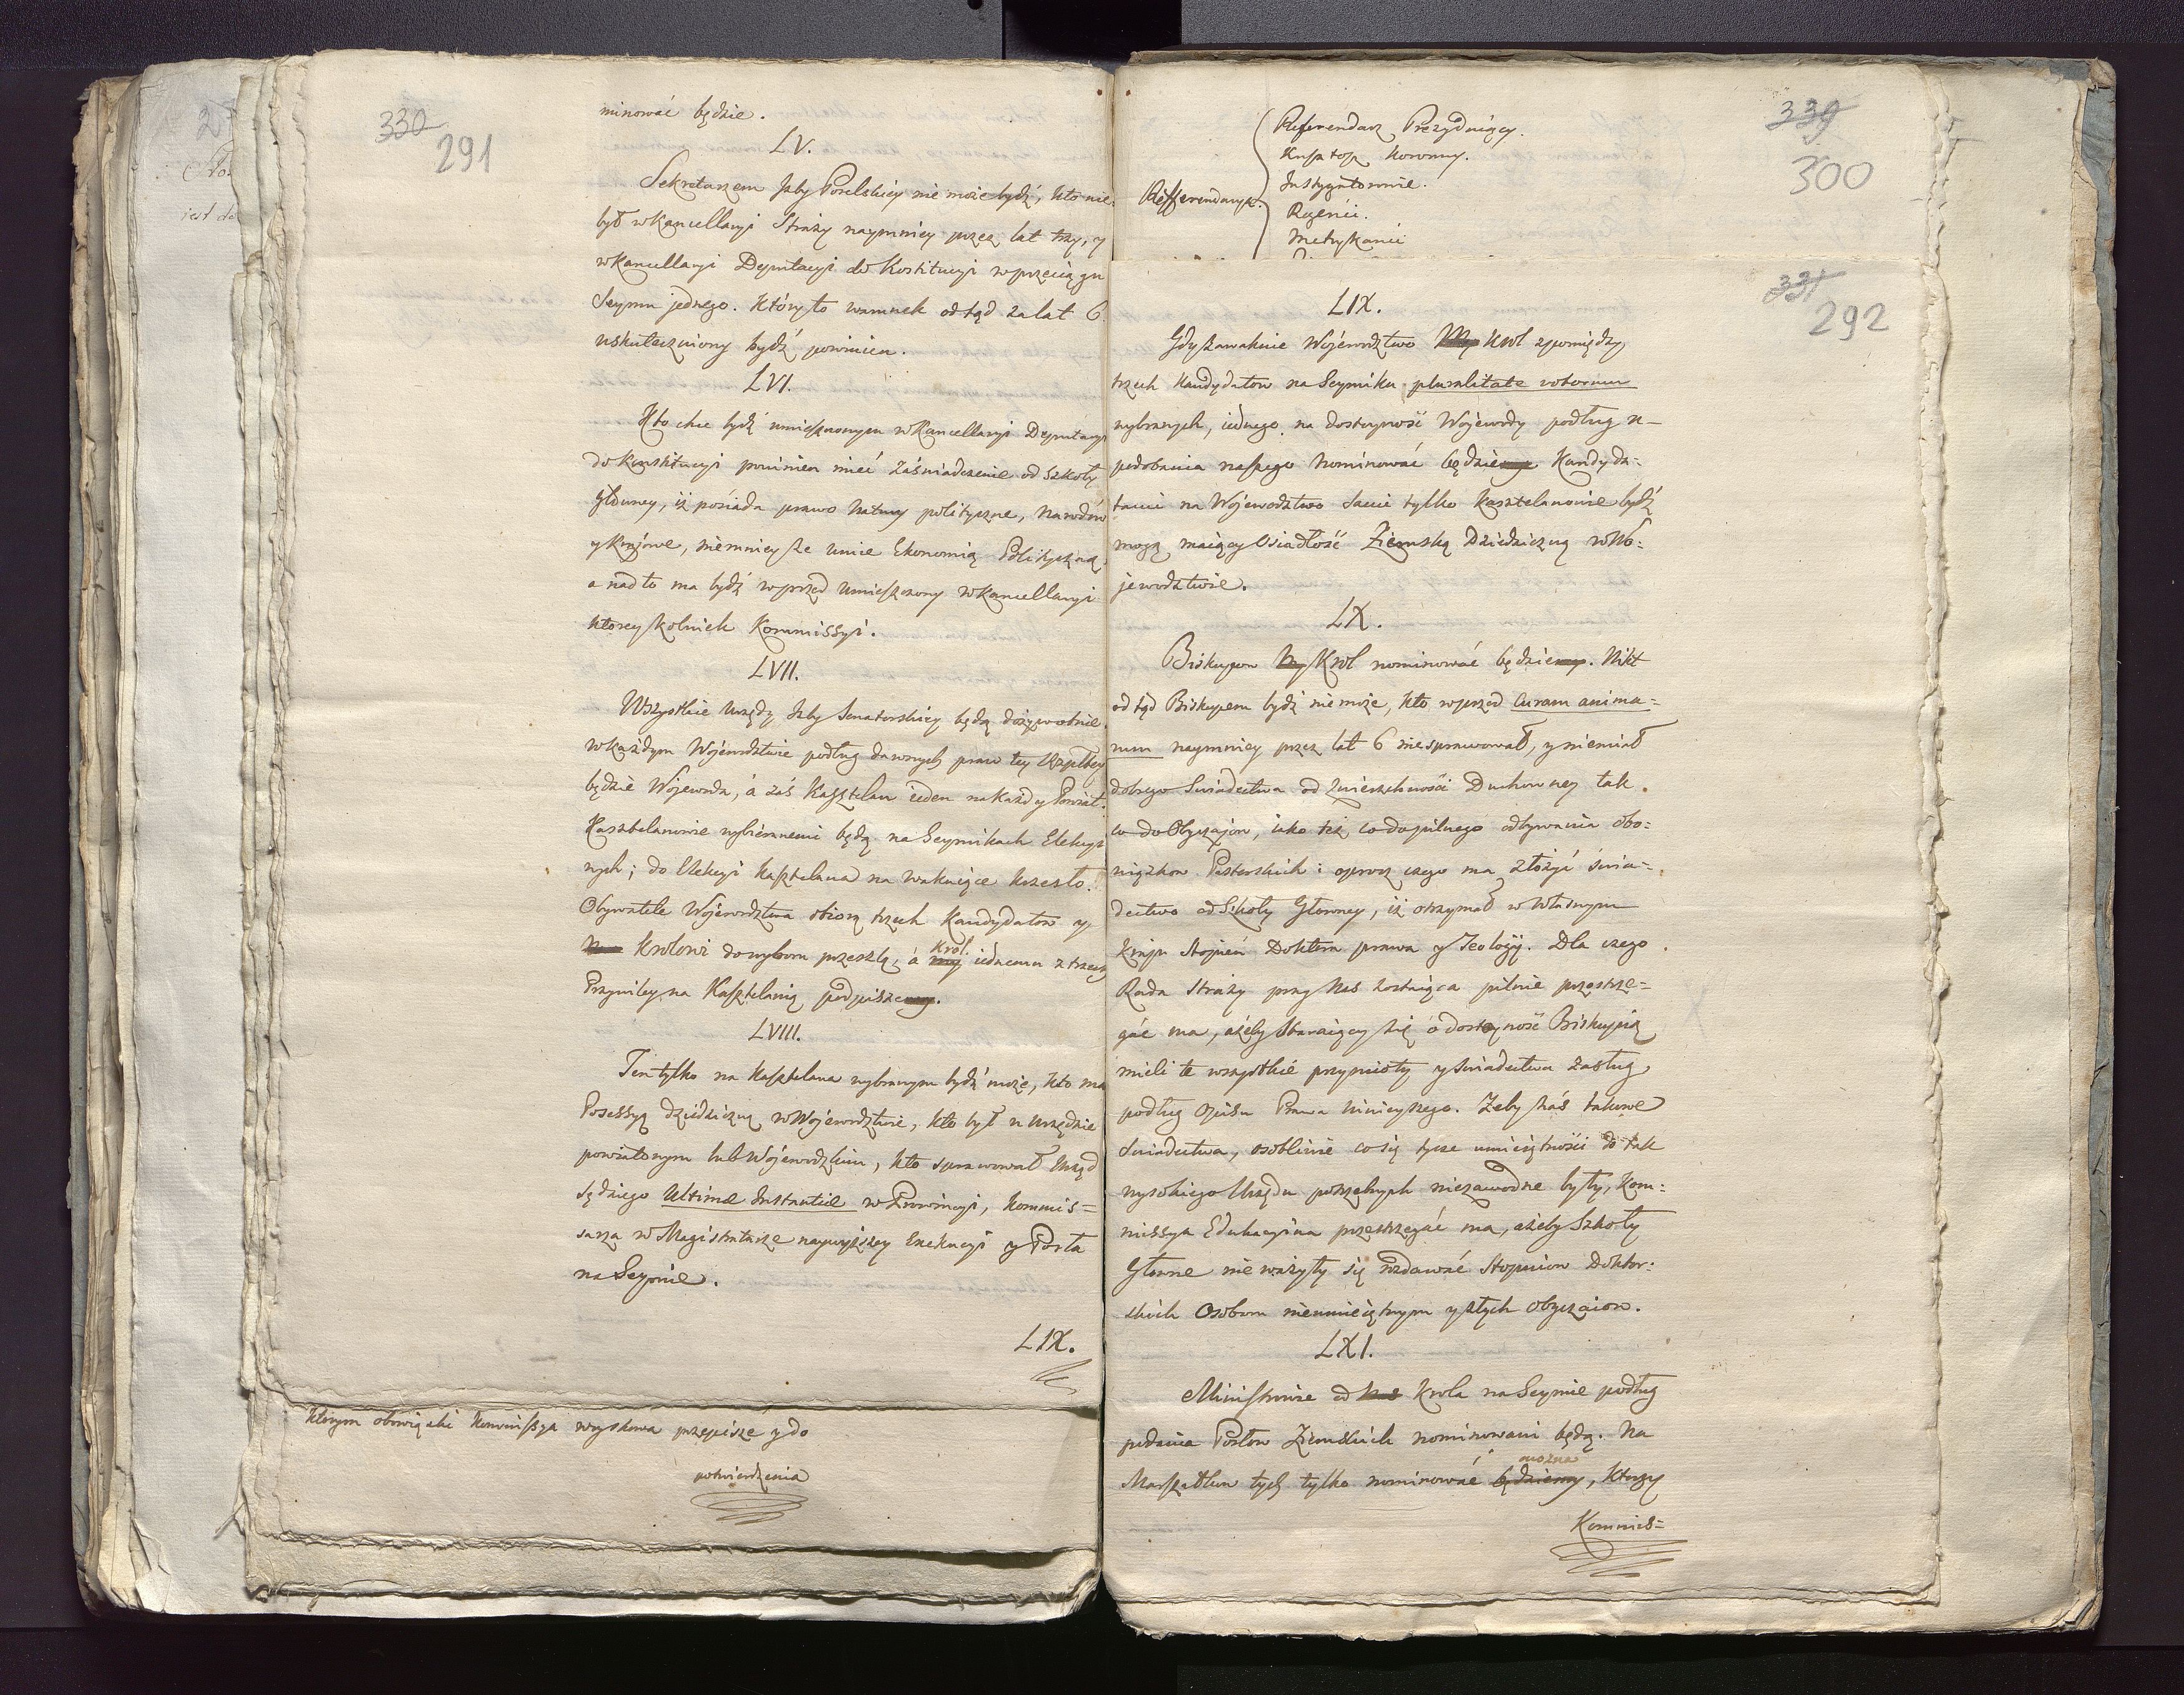 330
291
minować będzie.
LV.
Sekretarzem Jzby Poselskiey nie może bydź, kto nie
był w Kancellaryi Straży naymniey przez lat trzy, y
w Kancellaryi Deputacyi do Kostitucyi w przeciągu
Seymu jednego. Który to warunek odtąd za lat 6.
uskuteczniony bydź powinien.
LVI.
Kto chce bydź umieszczonym w Kancellaryi Deputacyi
do Konstitucyi powinien mieć zaświadczenie od Szkoły
Głowney, iż posiada prawo Natury polityczne, Narodów
y krajowe, niemniey że umie Ekonomią Polityczną
a nad to ma bydź wprzod umieszczony w Kancellaryi
ktorey kolwiek Kommissyi.
LVII.
Wszystkie Urzędy Jzby Senatorskiey będą dożywotnie.
w każdym Wojewodztwie podług dawnych praw tey Rzpltey
będzie Wojewoda, á zaś Kasztelan ieden na każdy Powiat.
Kasztelanowie wybieranemi będą na Seymikach Elekcyi
nych; do Elekcyi Kasztelana na wakuiące krzesło.
Obywatele Wojewodztwa obiorą trzech Kandydatow y
Krolowi do wyboru przeszlą, á my Krol. iednemu z trzech
Przywiley na Kasztelanią podpiszemy.
LVIII.
Ten tylko na Kasztelana wybranym bydź może, kto ma
Possessyą dziedziczną w Wojewodztwie, kto był w Urzędzie
powiatowym lub Wojewodzkim, kto sprawował Urząd
sędziego Ultimæ Instantiæ w Prowincyi, Kommis=
sarza w Magistraturze naywyższey Exekucyi y Posła
na Seymie.
LIX.
którym obowiązki Kommissya woyskowa przepisze y do
potwierdzenia
339
300
Refferendarya.
Referendarz Prezyduiący.
Kusztosz Koronny.
Instygatorowie.
Regenci.
Metrykanci
331
292
LIX.
Gdy zawakuie Wojewodztwo My Krol zpomiędzy
trzech Kandydatow na Seymiku pluralitate votorum
wybranych, iednego na dostoyność Wojewody podług u=
podobania naszego nominować będziemy Kandyda=
tami na Wojewodztwo sami tylko Kasztelanowie bydź
mogą maiący Osiadłość Ziemską Dziedziczną w Wo=
jewodztwie.
LX.
Biskupow My Krol nominować będziemy. Nikt
odtąd Biskupem bydź nie może, kto wprzod Curam anima=
rum naymniey przez lat 6 nie sprawował, y niemiał
dobrego świadectwa od Zwierzchności Duchowney tak
co do Obyczajow, iako też co do pilnego odbywania obo=
wiązkow Pasterskich: oprocz czego ma złożyć świa=
dectwo od Szkoły Głowney, iż otrzymał w Własnym
kraju stopień Doktora prawa y Teologij. Dla czego
Rada Straży przy Nas zostaiąca pilnie przestrze=
gać ma, ażeby staraiący się o dostoyność Biskupią
mieli te wszystkie przymioty y świadectwa zasług,
podług Opisu Prawa ninieyszego. Zeby zaś takowe
świadectwa, osobliwie co się tycze umieiętności do tak
wysokiego Urzędu potrzebnych niezawodne były, Kom=
missya Edukacyina przestrzegać ma, ażeby Szkoły
Głowne nie ważyły się rozdawać Stopniow Doktor=
skich Osobom nieumieiętnym y złych obyczaiow.
LXI.
Ministrowie od Nas Krola na Seymie podług
podania Posłow Ziemskich nominowani będą. Na
Marszałkow tych tylko nominować będziemy można, ktorzy
Kommis=